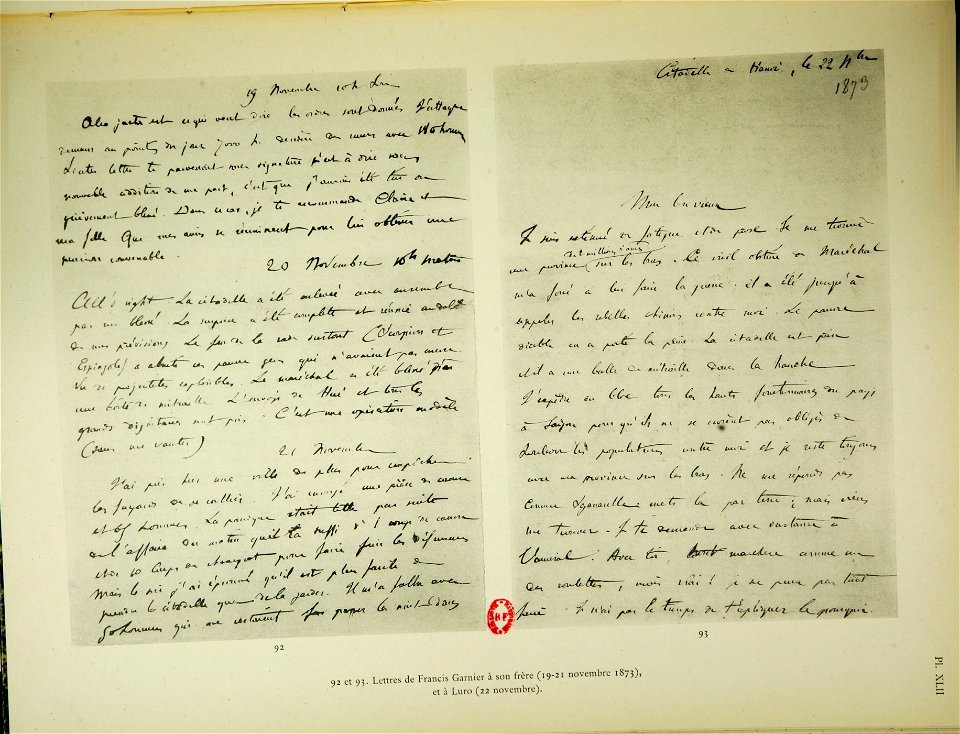 19 Novembre 10 h. Soir
Alea jacta est ce qui veut dire les ordres sont donnés J'attaque
demain au point du jour 7000 h. derrière des murs avec 180 hommes
Si cette lettre te parvenait sans signature c'est à dire sans
nouvelle addition de ma part, c'est que j'aurais été tué ou
grièvement blessé. Dans ce cas, je te recommande Claire et
ma fille Que mes amis se réunissent pour lui obtenir une
pension convenable.
20 Novembre 10h matin
All's right. La citadelle a été enlevée avec ensemble
pas un blessé. La surprise a été complète et réussie au delà
de mes prévisions Le feu de la rade surtout (Scorpion et
Espingole) a abruti ces pauvre gens qui n'avaient pas encore
vu de projectiles explosibles. Le maréchal a été blessé d'
une boîte de mitraille L'envoyé de Hué et tous les
grands dignitaires sont pris. C'est une opération modèle
(sans me vanter)
21 Novembre
J'ai pris hier une ville de plus pour empêcher
les fuyards de se rallier. J'ai envoyé une pièce de canon
et hommes. La panique était telle par suite
de l'affaire du matin qu'il a suffi d'1 coup de canon
et de 10 coups de chassepot pour faire fuir les défenseurs
Mais le soir j'ai éprouvé qu'il est plus facile de
prendre la citadelle que de la garder. Il m'a fallu avec
hommes qui me restaient faire passer la nuit dans
92
Citadelle de Hanoï, le 22 Nbre
1873
Mon bon vieux
Je suis exténué de fatigue et de pose Je me trouve
de 2 millions d'âmes
une province sur les bras. Ce vieil obstiné de Maréchal
m'a forcé à lui faire la guerre ; il a été jusqu'à
appeler les rebelles chinois contre moi. Le pauvre
diable en a porté la peine. La citadelle est prise
et il a une balle de mitraille dans la hanche
J'expédie en bloc tous les hauts fonctionnaires du pays
à Saïgon pour qu'ils ne se croient pas obligés de
les populations contre moi et je reste toujours
avec ma province sur les bras. Ne me réponds pas
comme Sganarelle mets la par terre ; mais viens
me trouver. Je te demande avec instance à
l'amiral. Avec toi, marchera comme sur
des roulettes ; mais vrai ! je ne peux pas tout
faire. Je n'ai pas le temps de t'expliquer le pourquoi
RF
93
92 et 93. Lettres de Francis Garnier à son frère (19-21 novembre 1873),
et à Luro (22 novembre).
Pl. XLII